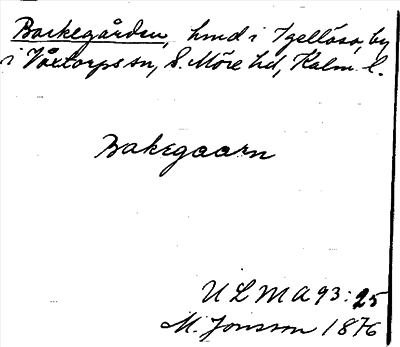 Barkegården, hmd i Igellösa, by
i Voxtorps sn, S. Möre hd, Kalm. l.
Bakegaarn
ULMA 93:25
M. Jonsson 1876